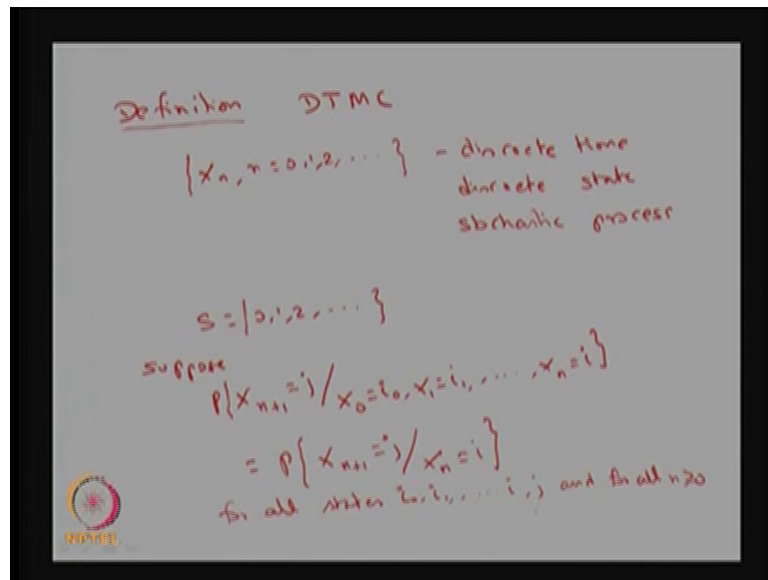 Definition DTMC
{Xn, n = 0,1,2, ... } - discrete time
discrete state
stochastic process
S = {0,1,2, ... }
Suppose
P{Xn+1 = j / X0 = i0, X1 = i1, ..., Xn = i}
= P{Xn+1 = j / Xn = i}
for all states i0, i1, ... i, j and for all n≥0
NPTEL